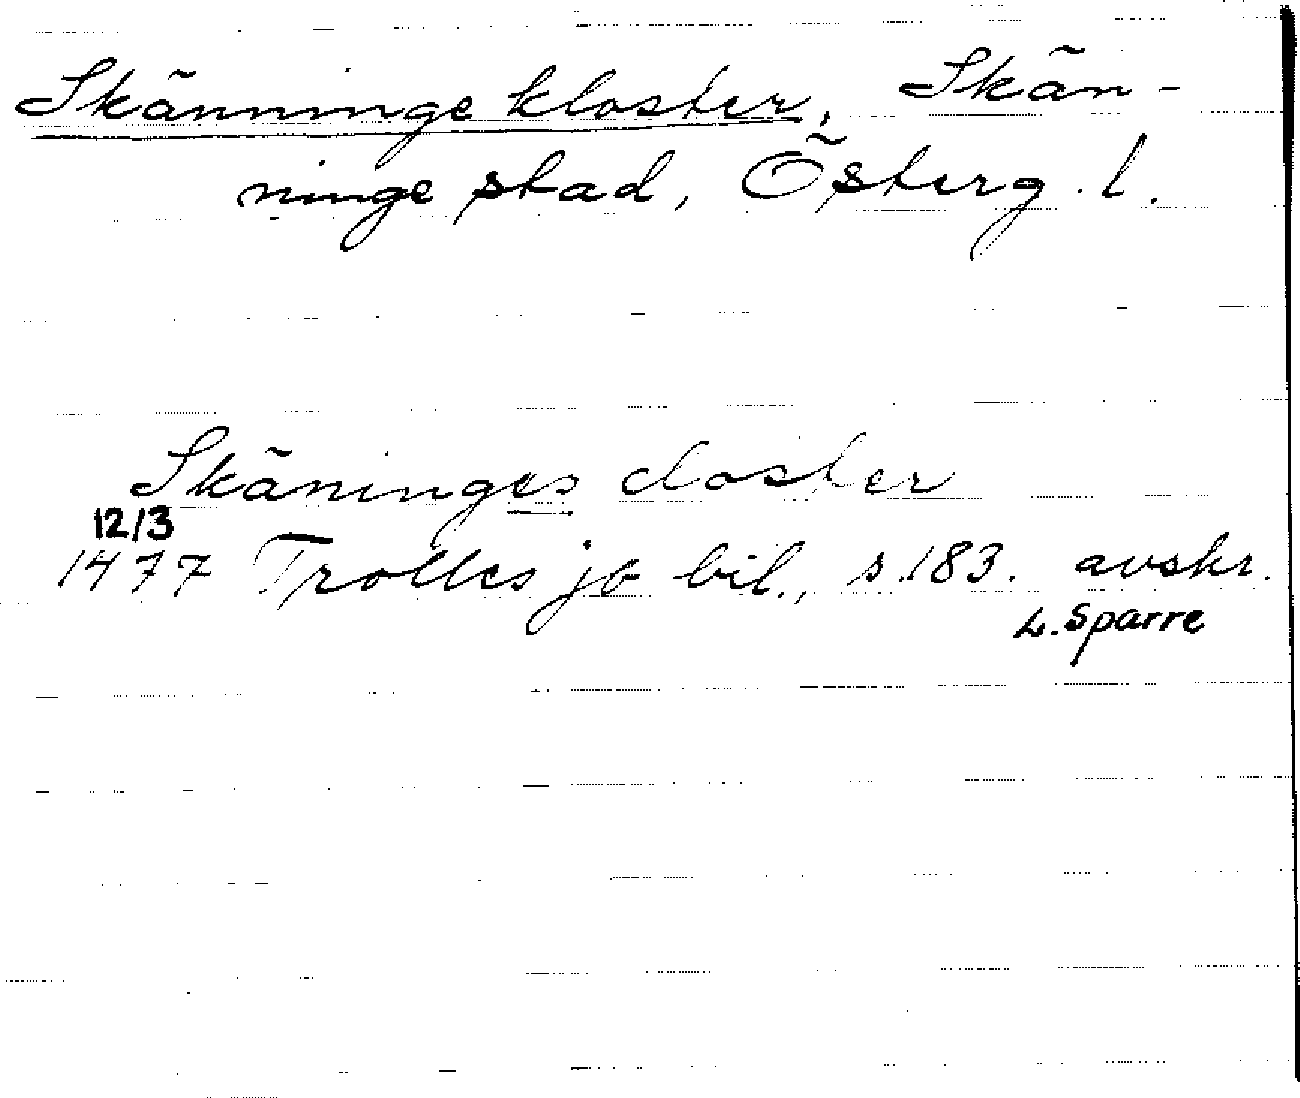 Skänninge kloster, Skän-
ninge stad, Österg. l.
Skäninges closter
12/3
1477 Trolles jb bil., s. 183. avskr.
L. Sparre